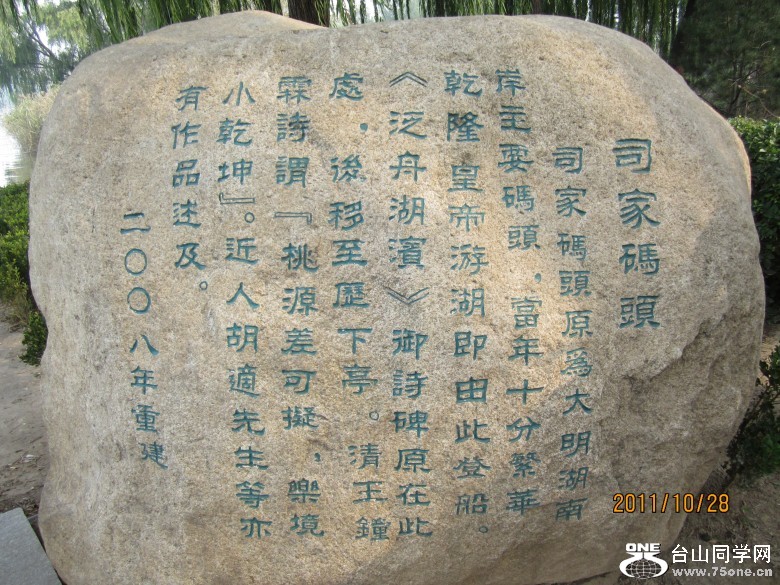 司家碼頭
司家碼頭原爲大明湖南
岸主要碼頭，當年十分繁華
乾隆皇帝游湖即由此登船。
《泛舟湖濱》御詩碑原在此
處，後移至歷下亭。清王鐘
霖詩謂『桃源差可擬，樂境
小乾坤』。近人胡適先生等亦
有作品述及。
二〇〇八年重建
2011/10/28
ONE 台山同学网
www.75one.cn